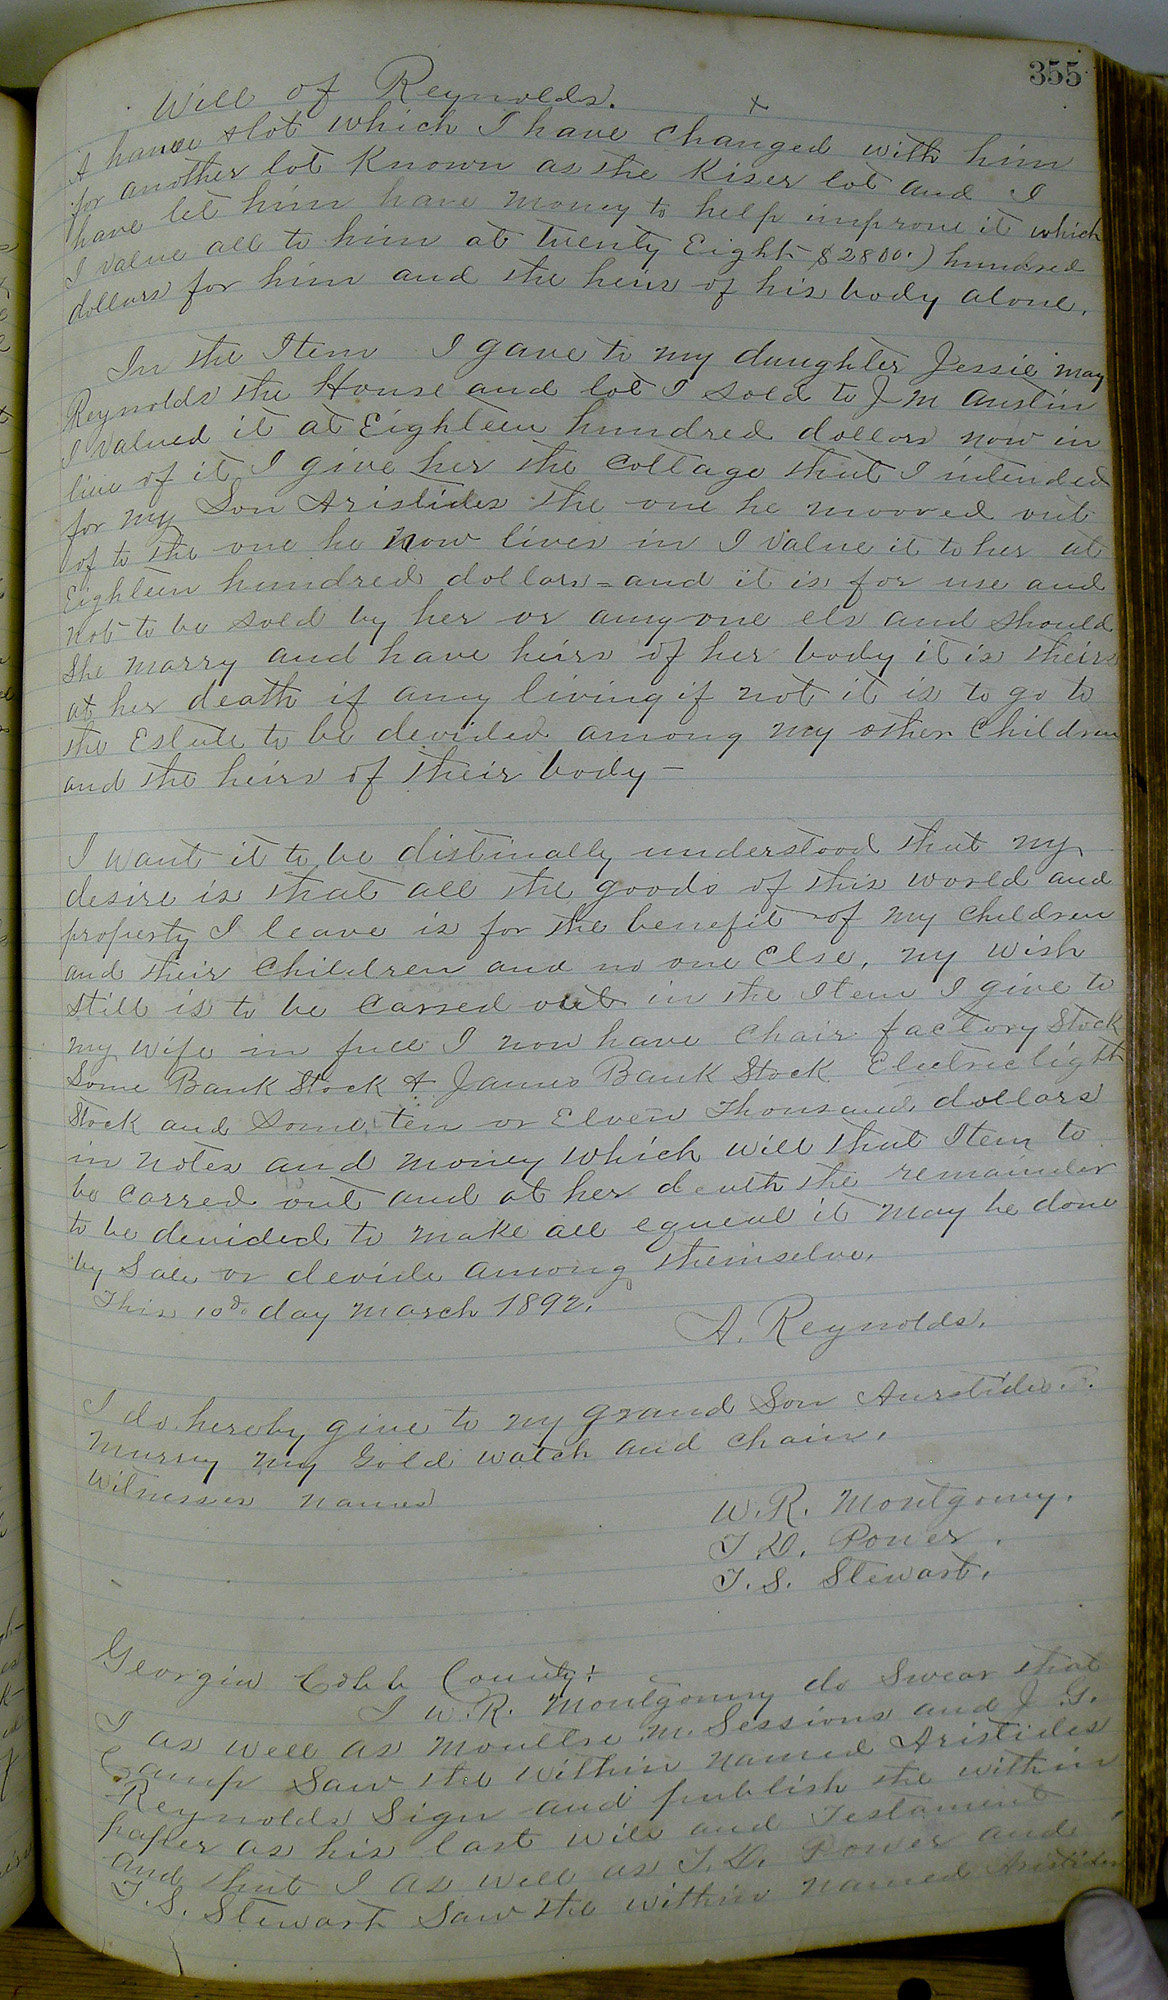 355
Will of Reynolds.
x
A house & lot which I have changed with him
for another lot Known as the Kiser lot and I
have let him have money to help improve it which
I value all to him at Twenty Eight $2800.) hundred
dollars for him and the heirs of his body alone.
In the Item I gave to my daughter Jessie May
Reynolds the House and lot I sold to J M Austin
I valued it at Eighteen hundred dollars now in
lieu of it I give her the Cottage that I intended
for my Son Aristides the one he mooved out
of to the one he now lives in I value it to her at
Eighteen hundred dollars = and it is for use and
not to be sold by her or any one els and should
she marry and have heirs of her body it is theirs
at her death if any living if not it is to go to
the Estate to be devided among my other Children
and the heirs of their body —
I want it to be distinally understood that my
desire is that all the goods of this world and
property I leave is for the benefit of my children
and their Children and no one Else, my wish
still is to be Carred out in the Item I give to
my wife in full I now have Chair factory Stock
Some Bank Stock & James Bank Stock Electric light
Stock and Some ten or Elven Thousand dollars
in notes and money which will that Item to
be Carred out and at her death the remainder
to be devided to make all equeal it may be done
by Sale or devide among themselves.
This 10d. day March 1892.
A. Reynolds.
I do hereby give to my grand Son Aurstides
Murray my Gold watch and chain.
Witnesses names
W. R. Montgomry.
T. D. Power.
T. S. Stewart.
Georgia Cobb County:
I W. R. Montgomry do Swear that
I as well as Moultre M. Sessions and J. G.
Camp Saw the within named Aristides
Reynolds Sign and publish the within
paper as his last will and Testament
and that I as well as T. D. Power and
T. S. Stewart Saw the within named Aristides